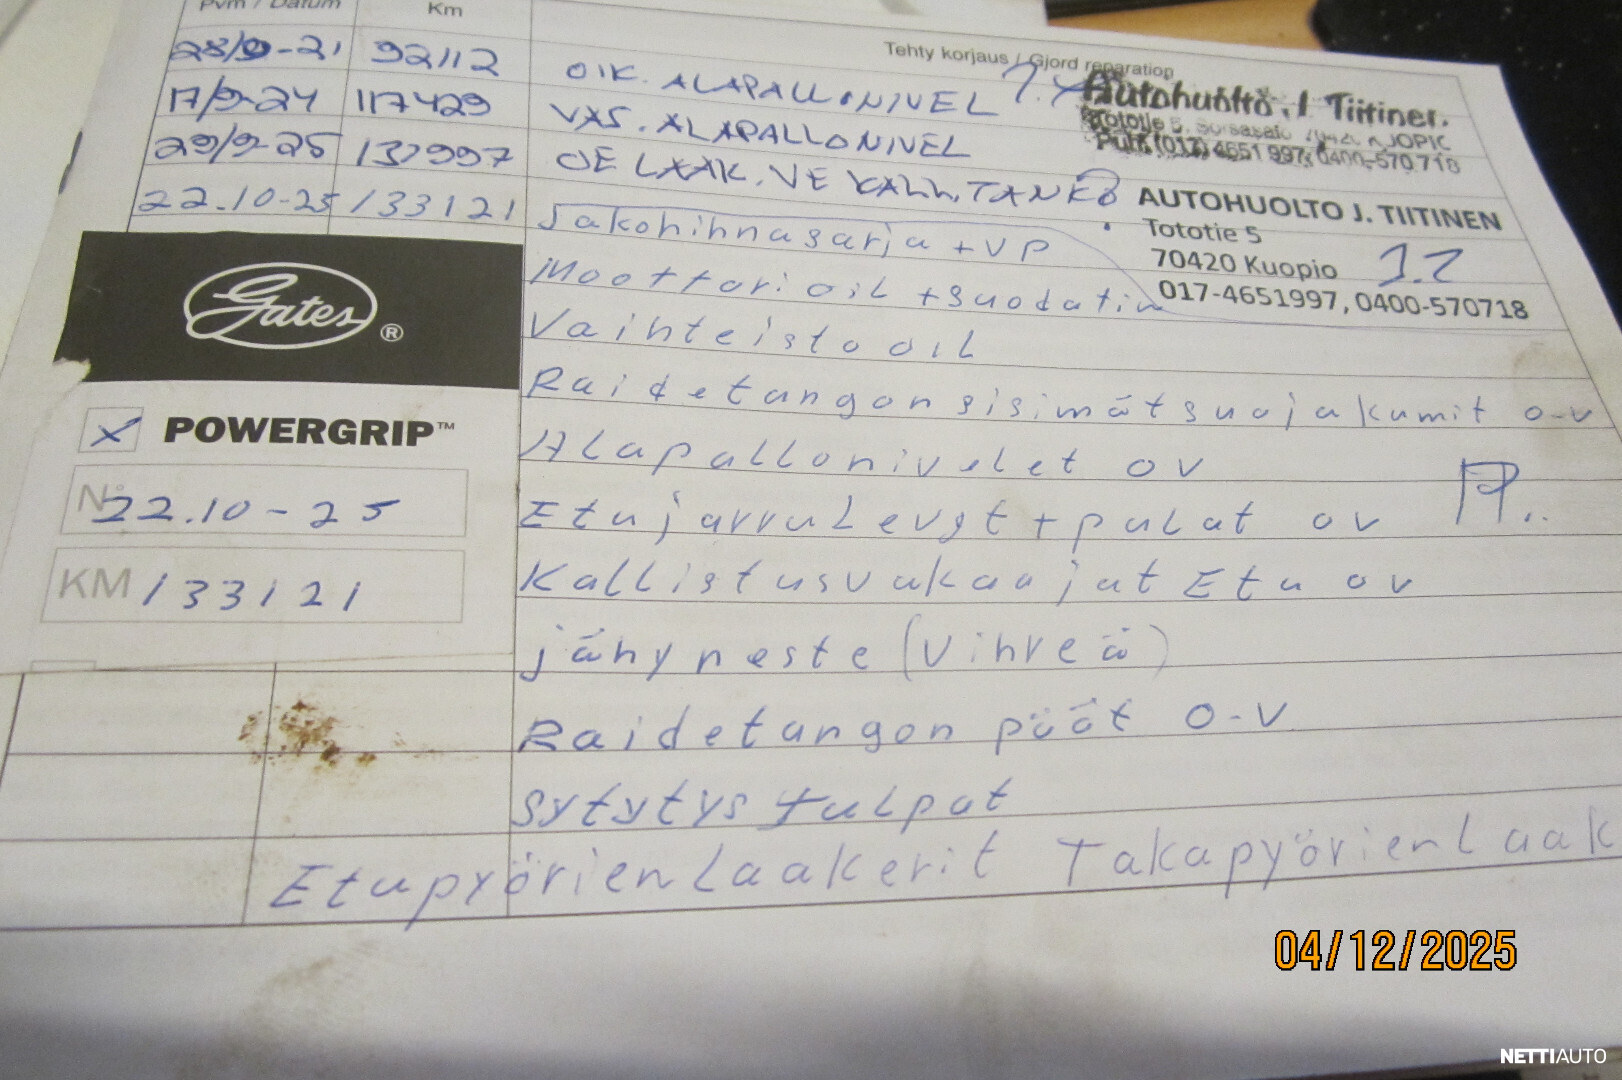 Pvm / Datum Km
Tehty korjaus / Gjord reparation
28/9-21 92112 OIK. ALAPALLONIVEL
17/9-24 117429 VAS. ALAPALLONIVEL
29/9-25 132997 OE LAAK. VE KALL.TANKO
22.10-25 133121 Jakohihnasarja + VP
Autohuolto J. Tiitinen
Puh. (017) 4651 997, 0400-570 718
AUTOHUOLTO J. TIITINEN
Tototie 5
70420 Kuopio
017-4651997, 0400-570718
Moottori oil + suodatin
Vaihteisto oil
Raidetangon sisimät suojakumit o-v
Alapallonivelet ov
Etujarrulevyt + palat ov
Kallistusvakaajat Etu ov
jähyneste (vihreä)
Raidetangon päät o-v
sytytystulpat
Etupyörienlaakerit Takapyörienlaak
Gates®
POWERGRIP™
N° 22.10-25
KM 133121
04/12/2025
NETTIAUTO